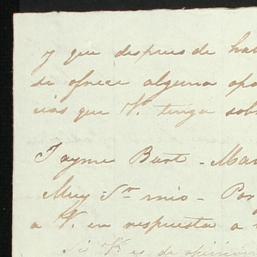 y que despues de hab
se ofrece alguna opo
cias que V. tenga sobr
Jayme Burt - Mar
Muy Sr mio - Por
a V. en respuesta a
Si V. es de opinion